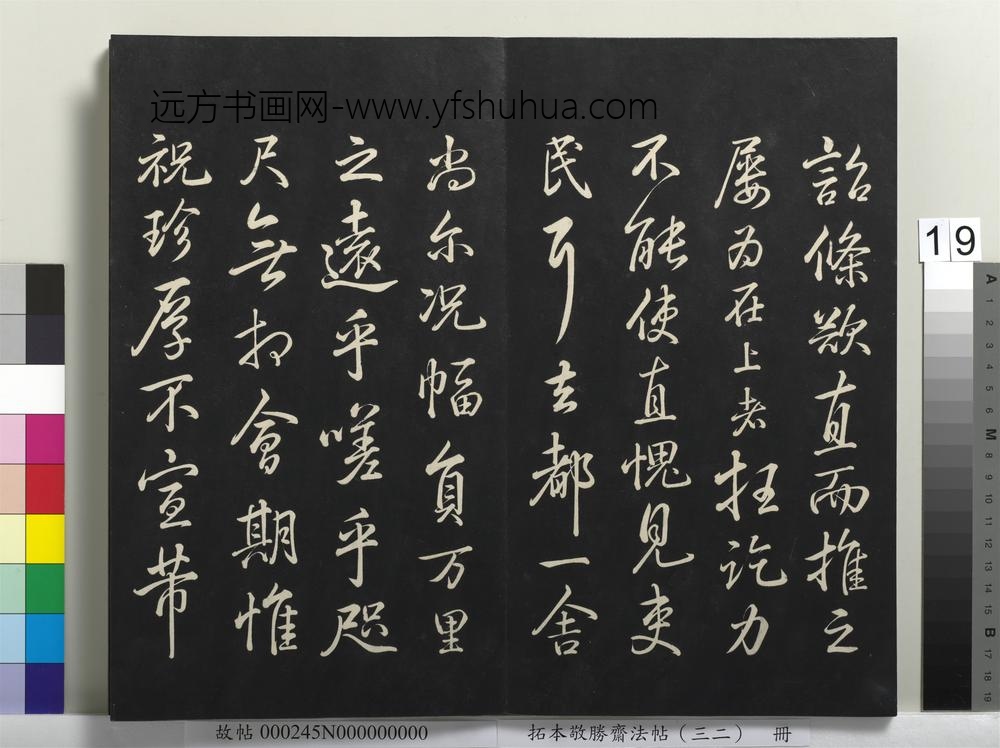 远方书画网-www.yfshuhua.com
詔條欲直而推之
屡为在上者抂訖力
不能使直愧見吏
民耳去都一舍
尚尔况幅負万里
之遠乎嗟乎咫
尺無打會期惟
祝珍厚不宣带
19
A
1
2
3
4
5
6
M
8
9
10
11
12
13
14
15
B
17
18
19
故帖 000245N000000000
拓本敬勝齋法帖（三二） 冊